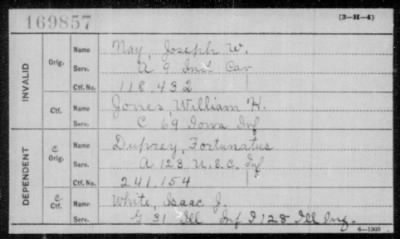 169857
(3-H-4)
INVALID
Orig.
Name Nay, Joseph W.
Serv. A 9 Ind. Cav
Ctf. No. 118,432
Ctf.
Name Jones, William H.
Serv. C 69 Iowa Inf
DEPENDENT
C. Orig.
Name Duprey, Fortunatus
Serv. A 123 U.S.C. Inf
Ctf. No. 241,154
C. Ctf.
Name White, Isaac J.
Serv. G 31 Ill Inf I 128 Ill Inf.
6-1909